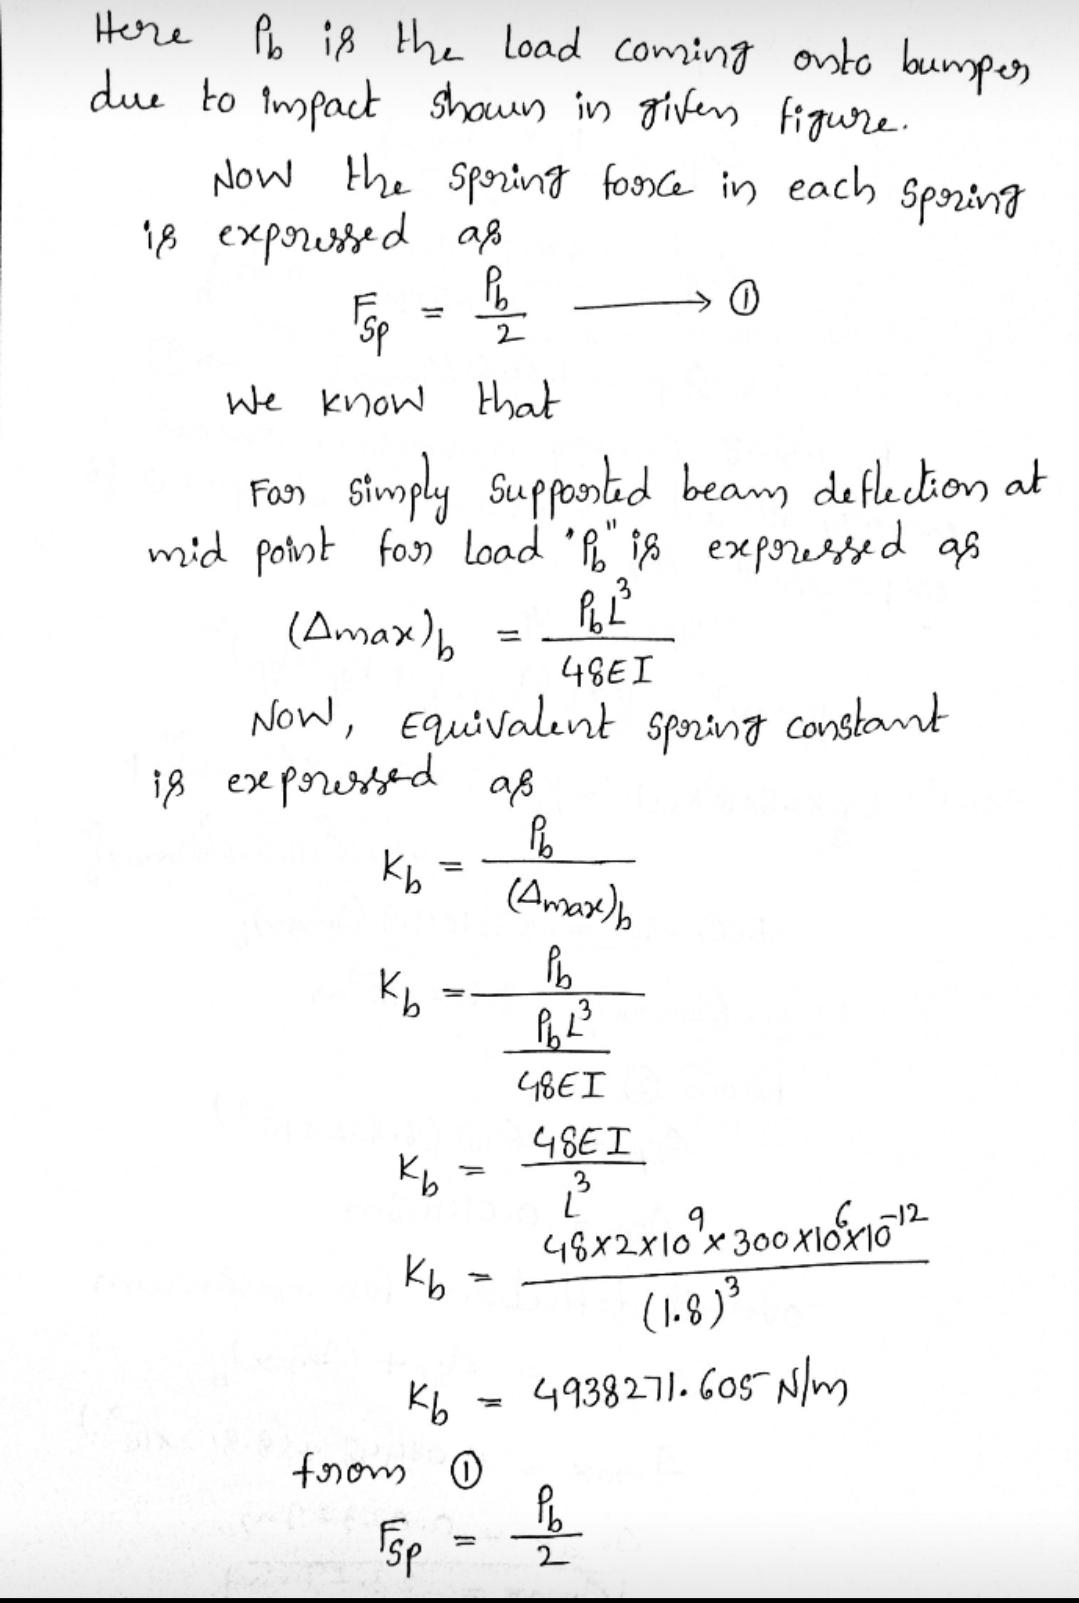 Here P_b is the load coming onto bumper
due to impact shown in given figure.
Now the spring force in each spring
is expressed as
F_sp = P_b/2 ⟶ ①
We know that
For simply supported beam deflection at
mid point for load "P_b" is expressed as
(Δmax)_b = P_b L³/48EI
Now, Equivalent spring constant
is expressed as
K_b = P_b/(Δmax)_b
K_b = P_b/(P_b L³/48EI)
K_b = 48EI/L³
K_b = 48×2×10⁹×300×10⁶×10⁻¹²/(1.8)³
K_b = 4938271.605 N/m
from ①
F_sp = P_b/2